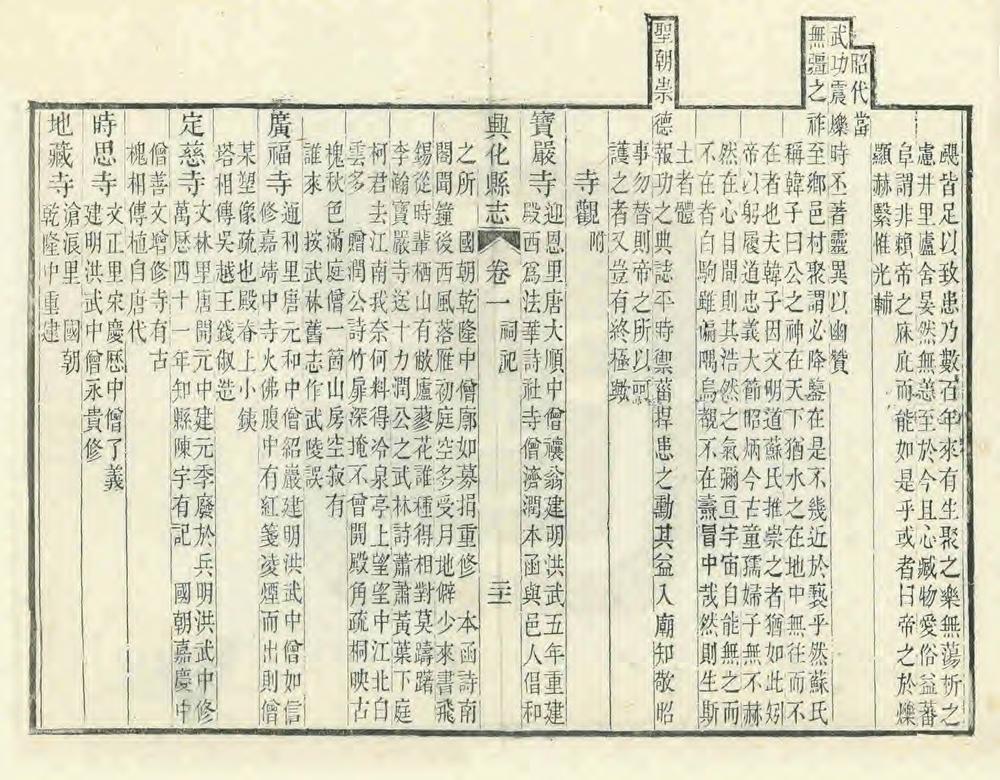 颶皆足以致患乃數百年來有生聚之樂無蕩析之
慮井里廬舍晏然無恙至於今且心臧物愛俗益蕃
阜謂非賴帝之庥庇而能如是乎或者曰帝之於爍
顯赫繫惟光輔
昭代當
武功震爍時不著靈異以幽贊
無疆之祚至鄉邑村聚謂必降鑒在是不幾近於褻乎然蘇氏
稱韓子曰公之神在天下猶水之在地中無往而不
在者也夫韓子因文明道蘇氏推崇之者猶如此矧
帝以躬履道忠義大節昭炳今古童孺婦子無不赫
然在心目間則其浩然之氣彌亘宇宙自能無之而
不在者白駒雖偏隅烏覩不在燾冒中哉然則生斯
土者體
聖朝崇德報功之典誌平時禦菑捍患之勳其益入廟知敬昭
事勿替則帝之所以呵
護之者又豈有終極歟
寺觀附
寶嚴寺迎恩里唐大順中僧禳翁建明洪武五年重建
殿西爲法華詩社寺僧濟潤本函與邑人倡和
興化縣志 卷一 祠祀 二十一
之所 國朝乾隆中僧廓如募捐重修 本函詩南
閣聞鐘後西風落雁初庭空多受月地僻少來書飛
錫從時輩栖山有敝廬蓼花誰種得相對莫躊躇
李瀚寶嚴寺送十力潤公之武林詩蕭蕭黃葉下庭
柯君去江南我奈何料得冷泉亭上望望中江北白
雲多 贈潤公詩竹扉深掩不曾開殿角疏桐映古
槐秋色滿庭僧一箇山房空寂有
誰來 按武林舊志作武陵誤
廣福寺通利里唐元和中僧紹巖建明洪武中僧如信
修嘉靖中寺火佛腹中有紅箋凌煙而出則僧
某塑像疏也殿脊上小鐵
塔相傳吳越王錢俶造
定慈寺文林里唐開元中建元季廢於兵明洪武中修
萬厯四十一年知縣陳宇有記 國朝嘉慶中
僧善文增修寺有古
槐相傳植自唐代
時思寺文正里宋慶歷中僧了義
建明洪武中僧永貴修
地藏寺滄浪里 國朝
乾隆中重建